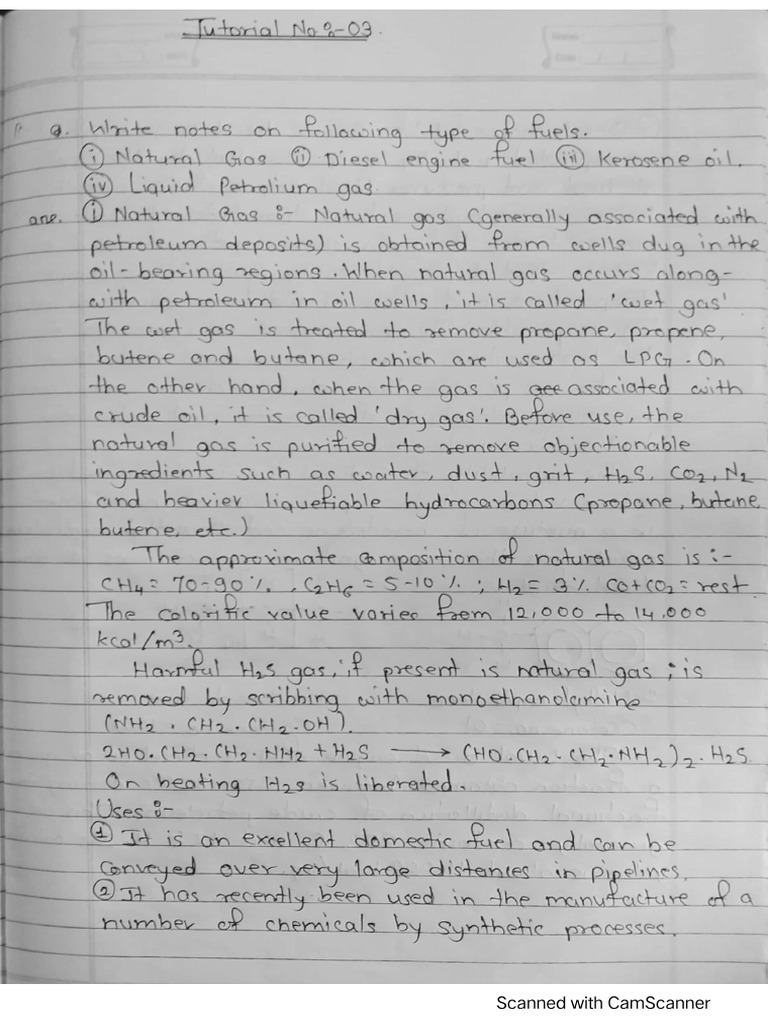 Tutorial No :- 03.
Q. Write notes on following type of fuels.
(i) Natural Gas (ii) Diesel engine fuel (iii) Kerosene oil.
(iv) Liquid Petrolium gas.
ans. (i) Natural Gas :- Natural gas (generally associated with
petroleum deposits) is obtained from wells dug in the
oil-bearing regions. When natural gas occurs along-
with petroleum in oil wells, it is called 'wet gas'
The wet gas is treated to remove propane, propene,
butene and butane, which are used as LPG. On
the other hand, when the gas is associated with
crude oil, it is called 'dry gas'. Before use, the
natural gas is purified to remove objectionable
ingredients such as water, dust, grit, H2S, CO2, N2
and heavier liquefiable hydrocarbons (propane, butane,
butene, etc.)
The approximate composition of natural gas is :-
CH4 = 70-90%, C2H6 = 5-10%; H2 = 3% CO+CO2 = rest.
The calorific value varies from 12,000 to 14,000
kcal/m3.
Harmful H2S gas, if present is natural gas; is
removed by scribbing with monoethanolamine
(NH2 . CH2 . CH2 . OH).
2HO.CH2.CH2.NH2 + H2S ⟶ (HO.CH2-CH2.NH2)2.H2S
On heating H2S is liberated.
Uses :-
① It is an excellent domestic fuel and can be
conveyed over very large distances in pipelines.
② It has recently been used in the manufacture of a
number of chemicals by synthetic processes.
Scanned with CamScanner